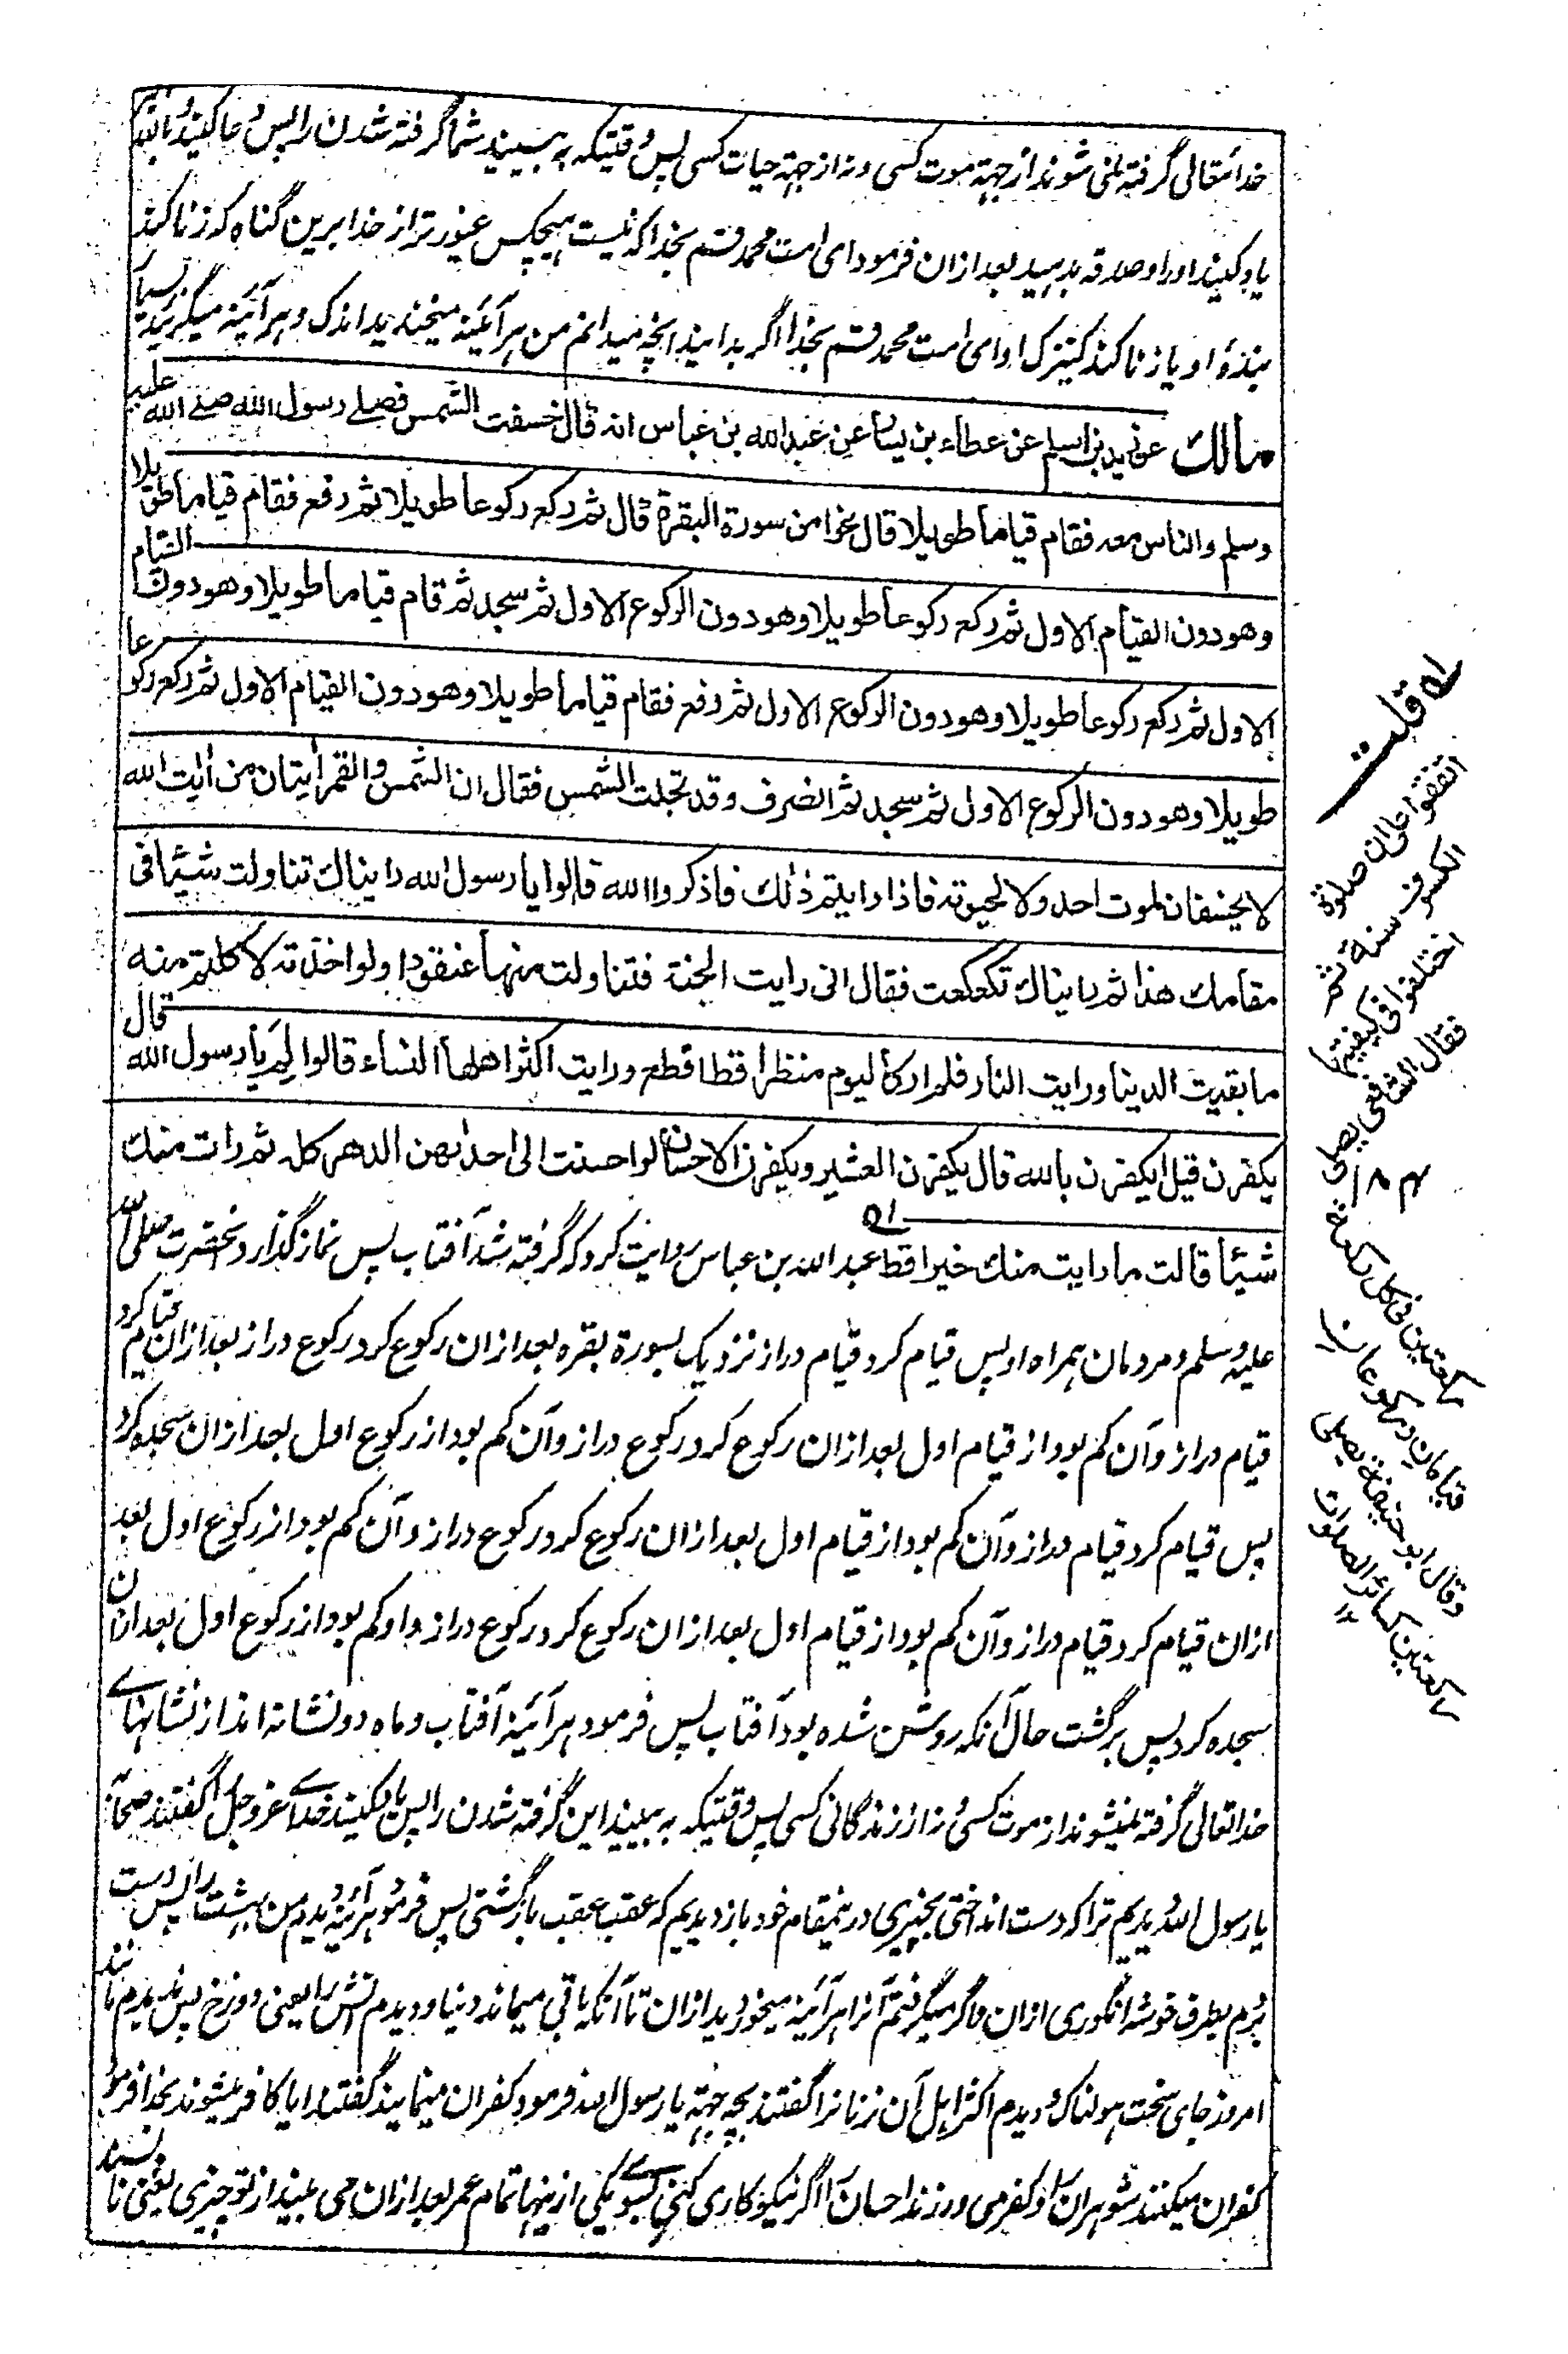 خدا تعالی گرفته نمی شوند از جهة موت کسی و نه از جهة حیات کسی پس وقتیکه به بینید شما گرفته شدن را پس دعا کنید
یاد کنید او را و صدقه بدهید بعد ازان فرمود ای امت محمد قسم بخدا که نیست هیچکس غیور تر از خدا برین گناه که زنا کند
بندهٔ او یا زنا کند کنیزک او ای امت محمد قسم بخدا اگر بدانید آنچه میدانم من هر آئینه میخندیدید اندک و هر آئینه میگریستید بسیار
مالك عن زيد بن اسلم عن عطاء بن يسار عن عبد الله بن عباس انه قال خسفت الشمس فصلے رسول الله صلے الله عليه
وسلم والناس معه فقام قياما طويلا قال نحوا من سورة البقرة قال ثم ركع ركوعا طويلا ثم رفع فقام قياما طويلا
وهو دون القيام الاول ثم ركع ركوعا طويلا وهو دون الركوع الاول ثم سجد ثم قام قياما طويلا وهو دون القيام
الاول ثم ركع ركوعا طويلا وهو دون الركوع الاول ثم رفع فقام قياما طويلا وهو دون القيام الاول ثم ركع ركوعا
طويلا وهو دون الركوع الاول ثم سجد ثم انصرف وقد تجلت الشمس فقال ان الشمس والقمر ايتان من ايات الله
لا يخسفان لموت احد ولا لحيوته فاذا رايتم ذلك فاذكروا الله قالوا يا رسول الله رايناك تناولت شيئا فى
مقامك هذا ثم رايناك تكعكعت فقال انى رايت الجنة فتناولت منها عنقودا ولو اخذته لاكلتم منه
ما بقيت الدنيا ورايت النار فلم ار كاليوم منظرا قط افظع ورايت اكثر اهلها النساء قالوا لم يا رسول الله قال
يكفرن قيل ايكفرن بالله قال يكفرن العشير ويكفرن الاحسان لو احسنت الى احدٰهن الدهر كله ثم رات منك
شيئا قالت ما رايت منك خيرا قط عبد الله بن عباس روایت کرد که گرفته شد آفتاب پس نماز گذارد آنحضرت صلی الله
علیه و سلم و مردمان همراه او پس قیام کرد قیام دراز نزدیک بسورة بقره بعد ازان رکوع کرد رکوع دراز بعد ازان قیام کرد
قیام دراز و آن کم بود از قیام اول بعد ازان رکوع کرد رکوع دراز و آن کم بود از رکوع اول بعد ازان سجده کرد
پس قیام کرد قیام دراز و آن کم بود از قیام اول بعد ازان رکوع کرد رکوع دراز و آن کم بود از رکوع اول بعد
ازان قیام کرد قیام دراز و آن کم بود از قیام اول بعد ازان رکوع کرد رکوع دراز و او کم بود از رکوع اول بعد ازان
سجده کرد پس برگشت حال آنکه روشن شده بود آفتاب پس فرمود هر آئینه آفتاب و ماه دو نشانه اند از نشانهاے
خدا تعالی گرفته نمیشوند از موت کسی و نه از زندگانی کسی پس وقتیکه به بینید این گرفته شدن را پس یاد کنید خداے عز و جل را گفتند صحابه
یا رسول الله دیدیم ترا که دست انداختی بچیزی درینمقام خود باز دیدیم که عقب عقب بازگشتی پس فرمود هر آئینه دیدم من بهشت را پس دست
بردم بطرف خوشه انگوری ازان و اگر میگرفتم آنرا هر آئینه میخوردید ازان تا آنکه باقی میماند دنیا و دیدم آتش را یعنی دوزخ پس ندیدم مانند
امروز جای سخت هولناک و دیدم اکثر اهل آن زنانرا گفتند بچه جهة یا رسول الله فرمود کفران مینمایند گفتند آیا کافر میشوند بخدا فرمود
کفران میکنند شوهران را و کفر می ورزند احسان را اگر نیکوکاری کنی بسوے یکی ازینها تمام عمر بعد ازان می بیند از تو چیزی یعنی ناپسند
له قلت
اتفقوا على ان صلوة
الكسوف سنة ثم
اختلفوا فى كيفيتها
فقال الشافعى يصلى
ركعتين فى كل ركعة
قيامان وركوعان
وقال ابو حنيفة يصلى
ركعتين كسائر الصلوات
۱۲